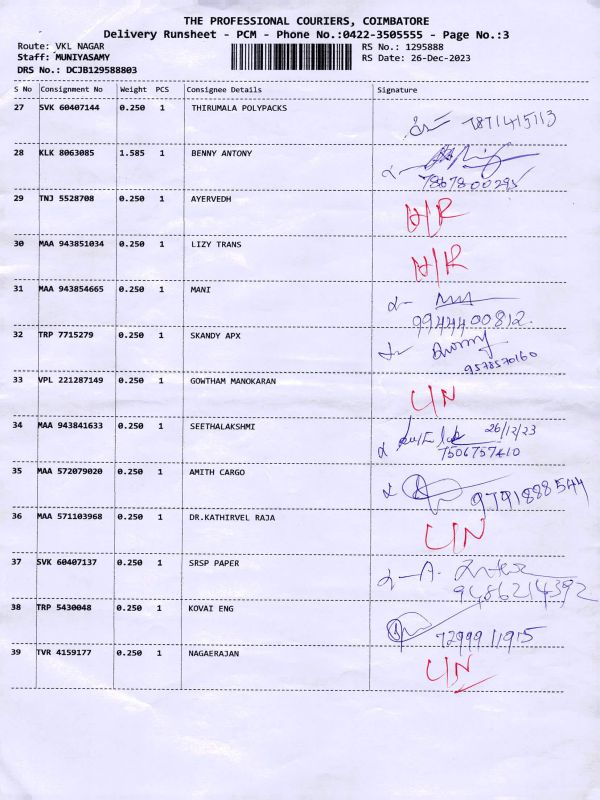 THE PROFESSIONAL COURIERS, COIMBATORE
Delivery Runsheet - PCM - Phone No.:0422-3505555 - Page No.:3
Route: VKL NAGAR RS No.: 1295888
Staff: MUNIYASAMY RS Date: 26-Dec-2023
DRS No.: DCJB129588803
S No Consignment No Weight PCS Consignee Details Signature
27 SVK 60407144 0.250 1 THIRUMALA POLYPACKS 7871415113
28 KLK 8063085 1.585 1 BENNY ANTONY
7867800295
29 TNJ 5528708 0.250 1 AYERVEDH H/R
30 MAA 943851034 0.250 1 LIZY TRANS H/R
31 MAA 943854665 0.250 1 MANI
9944400812.
32 TRP 7715279 0.250 1 SKANDY APX
9578570160
33 VPL 221287149 0.250 1 GOWTHAM MANOKARAN L/N
34 MAA 943841633 0.250 1 SEETHALAKSHMI 26/12/23
7506757410
35 MAA 572079020 0.250 1 AMITH CARGO 9791888544
36 MAA 571103968 0.250 1 DR.KATHIRVEL RAJA L/N
37 SVK 60407137 0.250 1 SRSP PAPER A.
9486214392
38 TRP 5430048 0.250 1 KOVAI ENG
7299911915
39 TVR 4159177 0.250 1 NAGAERAJAN L/N